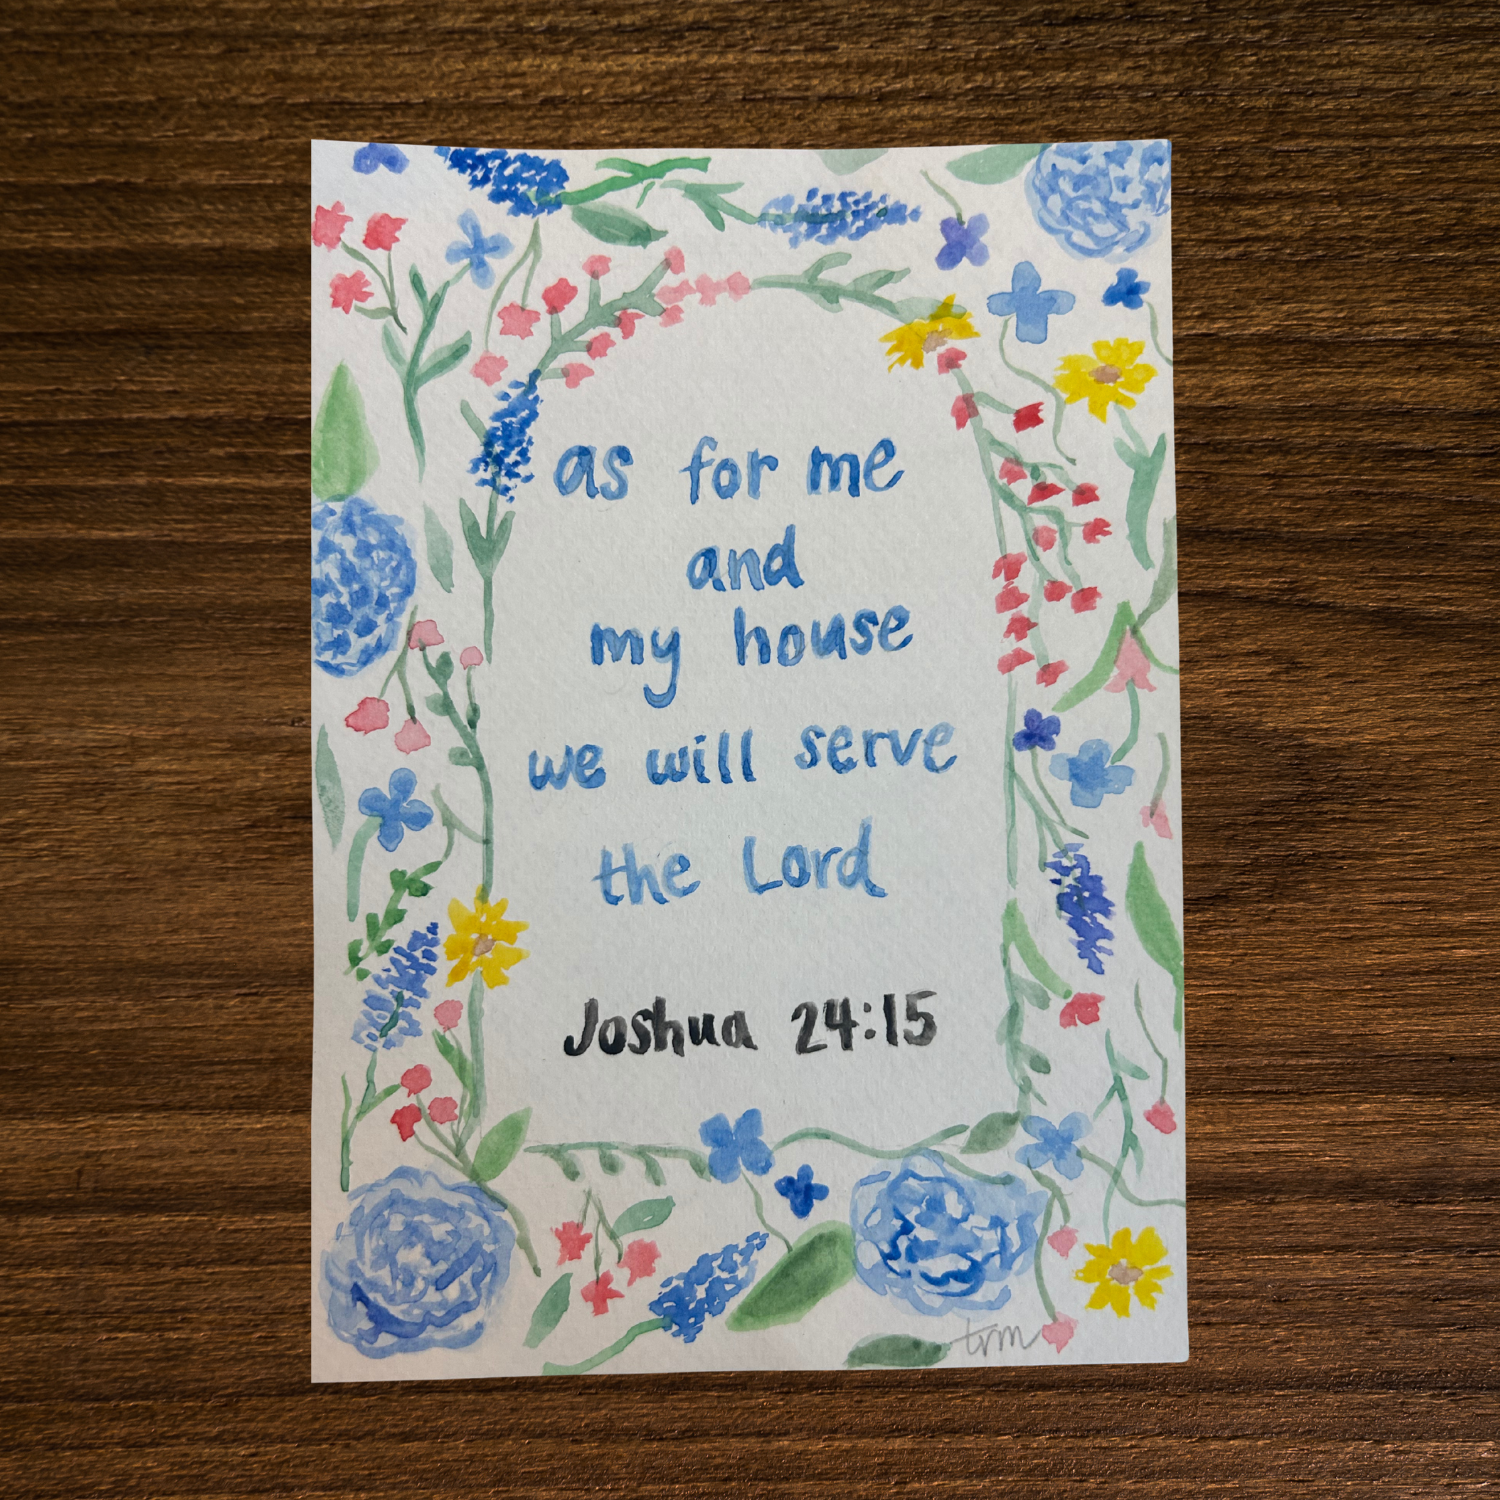 as for me
and
my house
we will serve
the Lord
Joshua 24:15
trm